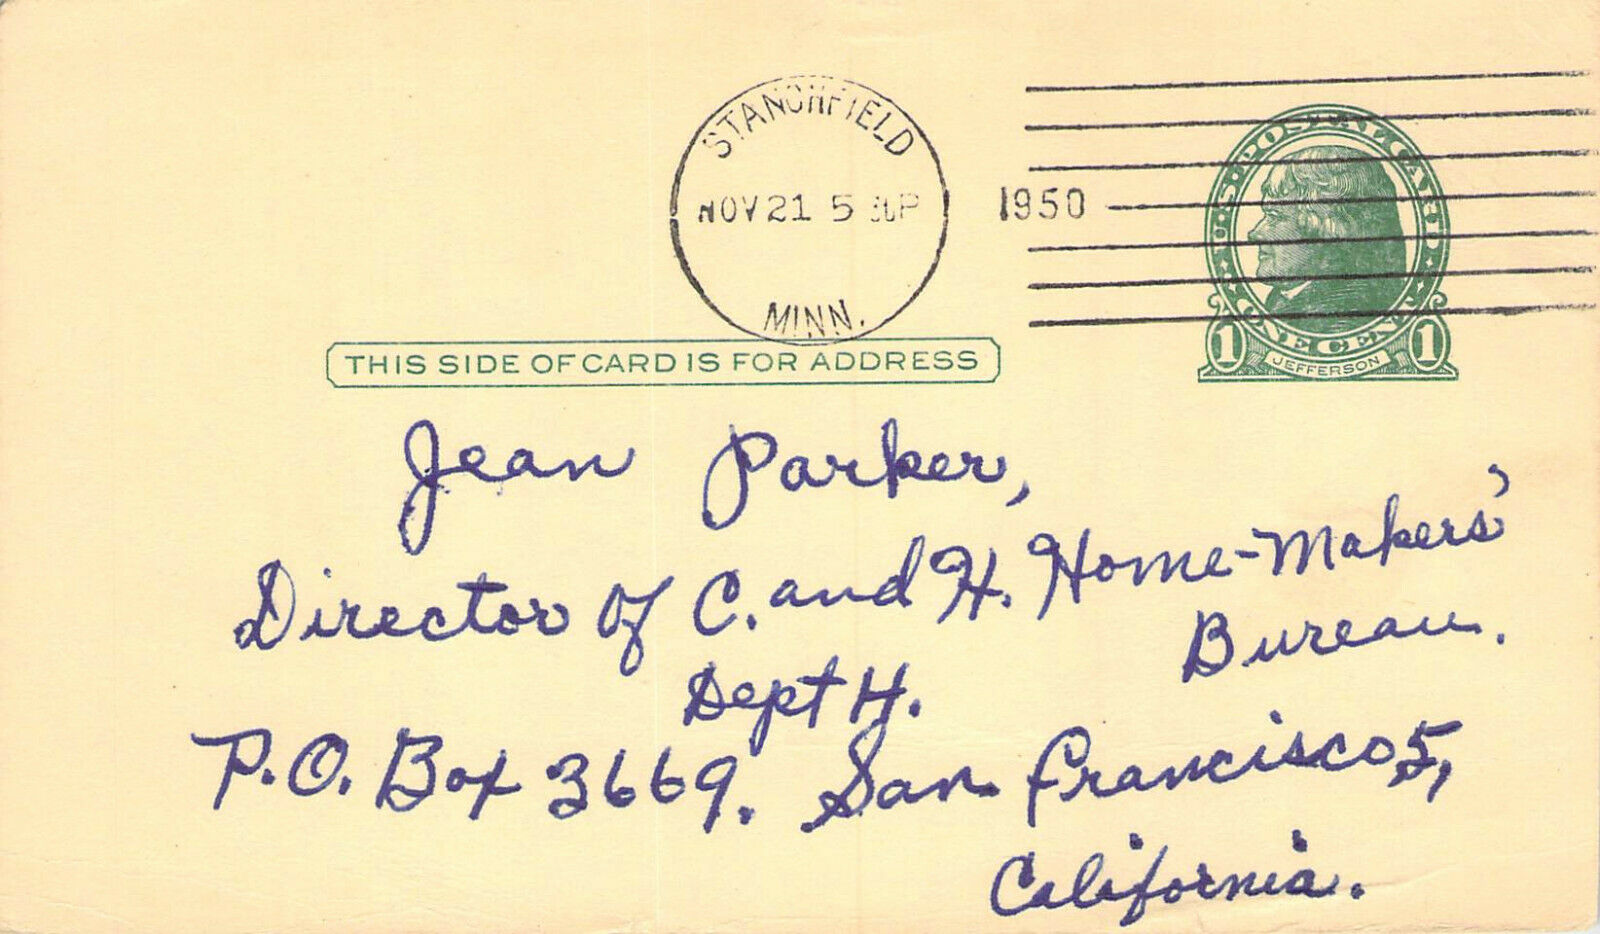 STANCHFIELD
NOV 21 5 30P 1950
MINN.
U.S. POSTAL CARD
ONE CENT
1 JEFFERSON 1
THIS SIDE OF CARD IS FOR ADDRESS
Jean Parker,
Director of C. and H. Home-Makers'
Bureau.
Dept H.
P.O. Box 3669. San Francisco, 5,
California.